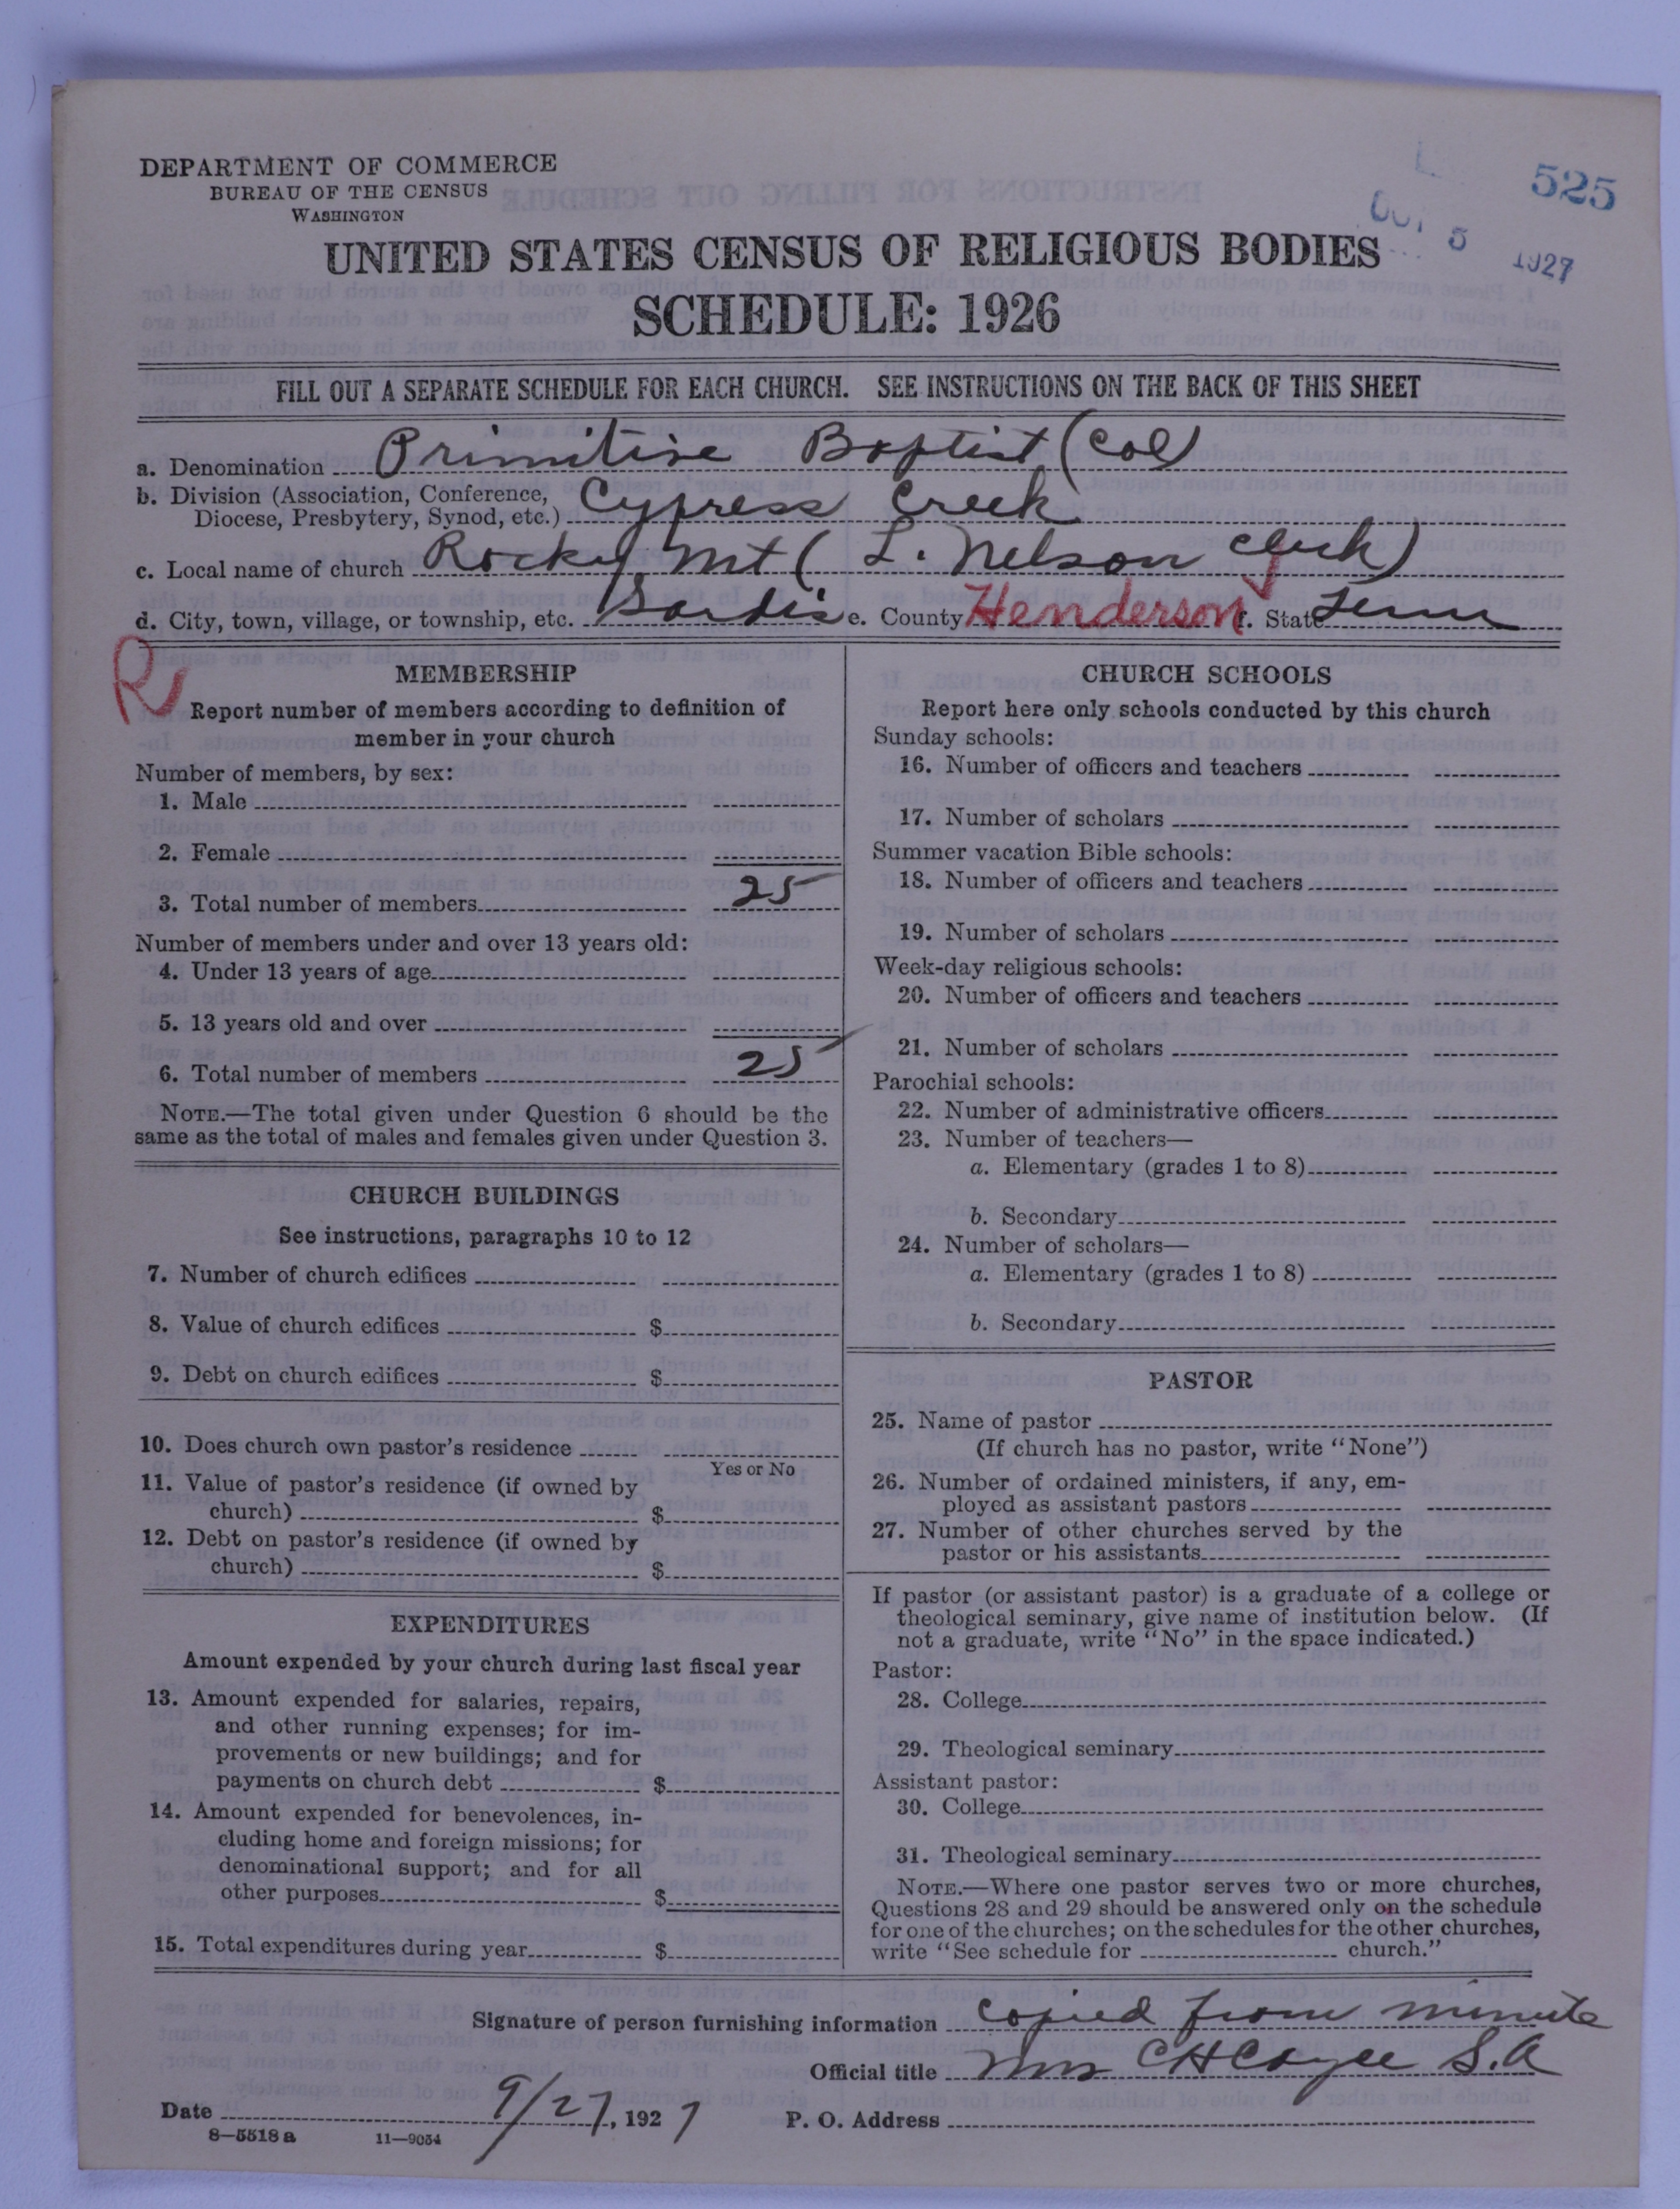 DEPARTMENT OF COMMERCE
BUREAU OF THE CENSUS
WASHINGTON
525
OCT 5 1927
UNITED STATES CENSUS OF RELIGIOUS BODIES
SCHEDULE: 1926
FILL OUT A SEPARATE SCHEDULE FOR EACH CHURCH. SEE INSTRUCTIONS ON THE BACK OF THIS SHEET
a. Denomination Primitive Baptist (Col)
b. Division (Association, Conference, Diocese, Presbytery, Synod, etc.) Cypress Creek
c. Local name of church Rocky Mt (L. Nelson clerk)
d. City, town, village, or township, etc. Sardis e. County Henderson f. State Tenn
R
MEMBERSHIP
Report number of members according to definition of
member in your church
Number of members, by sex:
1. Male
2. Female
3. Total number of members 25
Number of members under and over 13 years old:
4. Under 13 years of age
5. 13 years old and over
6. Total number of members 25
NOTE.—The total given under Question 6 should be the
same as the total of males and females given under Question 3.
CHURCH BUILDINGS
See instructions, paragraphs 10 to 12
7. Number of church edifices
8. Value of church edifices $
9. Debt on church edifices $
10. Does church own pastor's residence
Yes or No
11. Value of pastor's residence (if owned by
church) $
12. Debt on pastor's residence (if owned by
church) $
EXPENDITURES
Amount expended by your church during last fiscal year
13. Amount expended for salaries, repairs,
and other running expenses; for im-
provements or new buildings; and for
payments on church debt $
14. Amount expended for benevolences, in-
cluding home and foreign missions; for
denominational support; and for all
other purposes $
15. Total expenditures during year $
CHURCH SCHOOLS
Report here only schools conducted by this church
Sunday schools:
16. Number of officers and teachers
17. Number of scholars
Summer vacation Bible schools:
18. Number of officers and teachers
19. Number of scholars
Week-day religious schools:
20. Number of officers and teachers
21. Number of scholars
Parochial schools:
22. Number of administrative officers
23. Number of teachers—
a. Elementary (grades 1 to 8)
b. Secondary
24. Number of scholars—
a. Elementary (grades 1 to 8)
b. Secondary
PASTOR
25. Name of pastor
(If church has no pastor, write "None")
26. Number of ordained ministers, if any, em-
ployed as assistant pastors
27. Number of other churches served by the
pastor or his assistants
If pastor (or assistant pastor) is a graduate of a college or
theological seminary, give name of institution below. (If
not a graduate, write "No" in the space indicated.)
Pastor:
28. College
29. Theological seminary
Assistant pastor:
30. College
31. Theological seminary
NOTE.—Where one pastor serves two or more churches,
Questions 28 and 29 should be answered only on the schedule
for one of the churches; on the schedules for the other churches,
write "See schedule for church."
Signature of person furnishing information copied from minute
Official title Mrs C H Cayce S.A
Date 9/27, 1927 P. O. Address
8—5518 a 11—9054